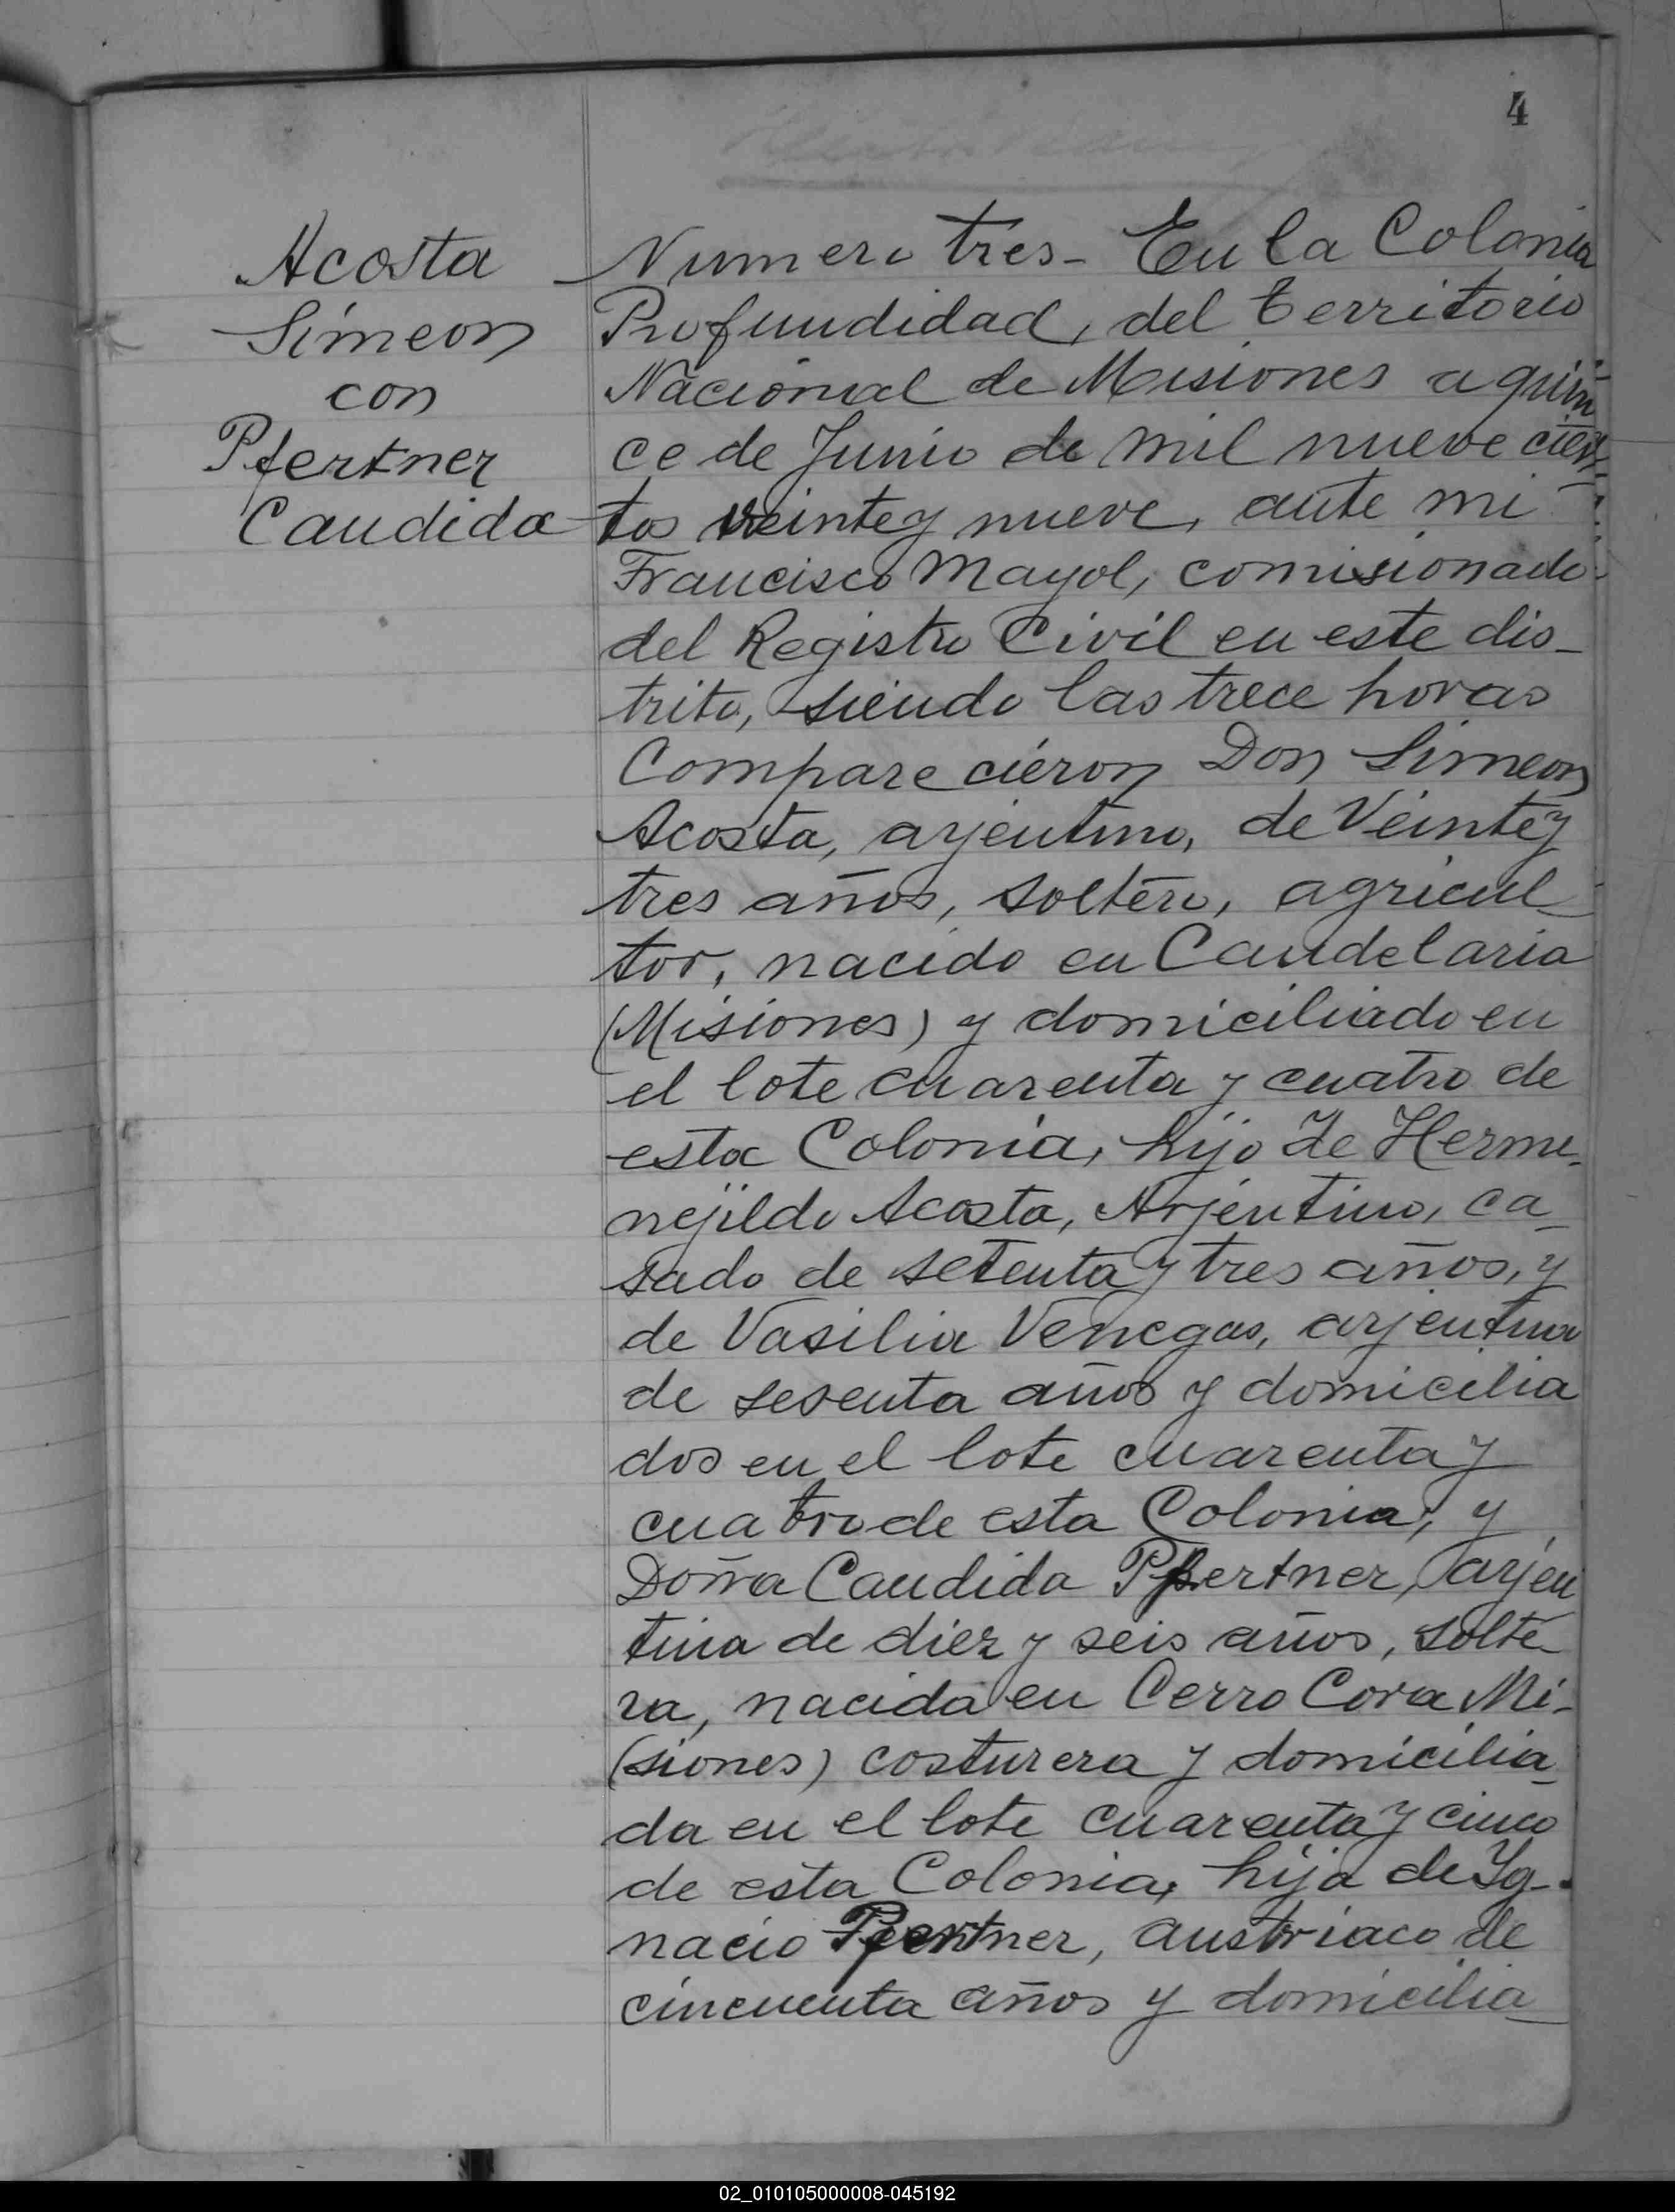 4
Acosta
Simeon
con
Pfertner
Candida
Numero tres - En la Colonia
Profundidad, del territorio
Nacional de Misiones a quin
ce de Junio de mil nueve cien
tos veinte y nueve, ante mi
Francisco Mayol, comisionado
del Registro Civil en este dis_
trito, siendo las trece horas
Comparecieron Don Simeon
Acosta, arjentino, de Veinte y
tres años, soltero, agricul_
tor, nacido en Candelaria
(Misiones) y domiciliado en
el lote cuarenta y cuatro de
esta Colonia, hijo de Herme_
nejildo Acosta, Arjentino, ca_
sado de setenta y tres años, y
de Vasilia Venegas, arjentina
de sesenta años y domicilia
dos en el lote cuarenta y
cuatro de esta Colonia; y
Doña Candida Pfertner, arjen
tina de diez y seis años, solte_
ra, nacida en Cerro Cora Mi_
(siones) costurera y domicilia_
da en el lote cuarenta y cinco
de esta Colonia, hija de Yg_
nacio Pfertner, austriaco de
cincuenta años y domicilia_
02_010105000008-045192